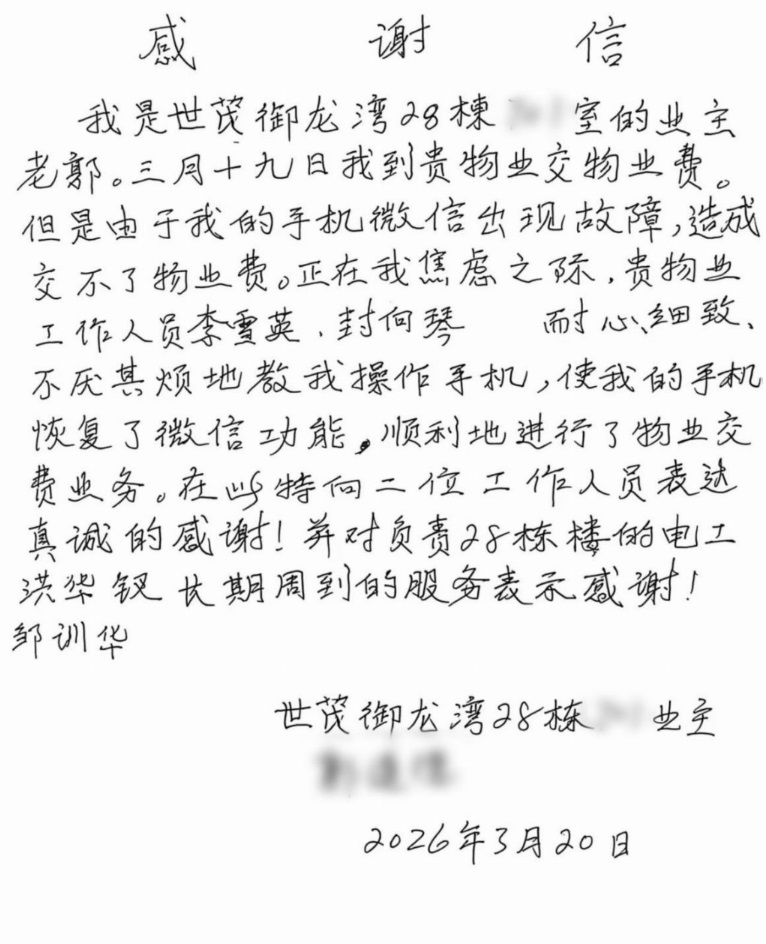 感谢信
我是世茂御龙湾28栋 室的业主
老郭。三月十九日我到贵物业交物业费。
但是由于我的手机微信出现故障,造成
交不了物业费。正在我焦虑之际,贵物业
工作人员李雪英、封向琴 耐心细致、
不厌其烦地教我操作手机,使我的手机
恢复了微信功能。顺利地进行了物业交
费业务。在此特向二位工作人员表达
真诚的感谢!并对负责28栋楼的电工
洪华钗长期周到的服务表示感谢!
邹训华
世茂御龙湾28栋 业主
2026年3月20日